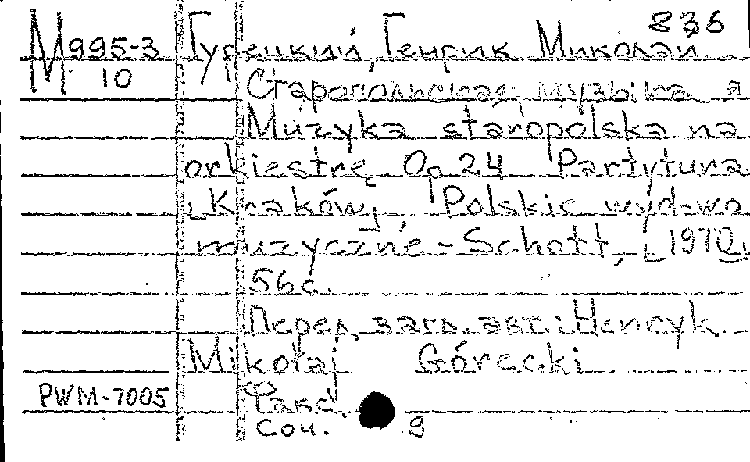 836
М995-3 Гурецкий, Генрик Миколай
10
Старопольская музыка я
Muzyka staropolska na
orkiestrę Op 24 Partytura
[Kraków], Polskie wyd-wo
muzyczne - Schott, [1970]
56 с.
Перед загл. авт.: Henryk
Mikołaj Górecki
PWM-7005
Такс.
Соч. 9